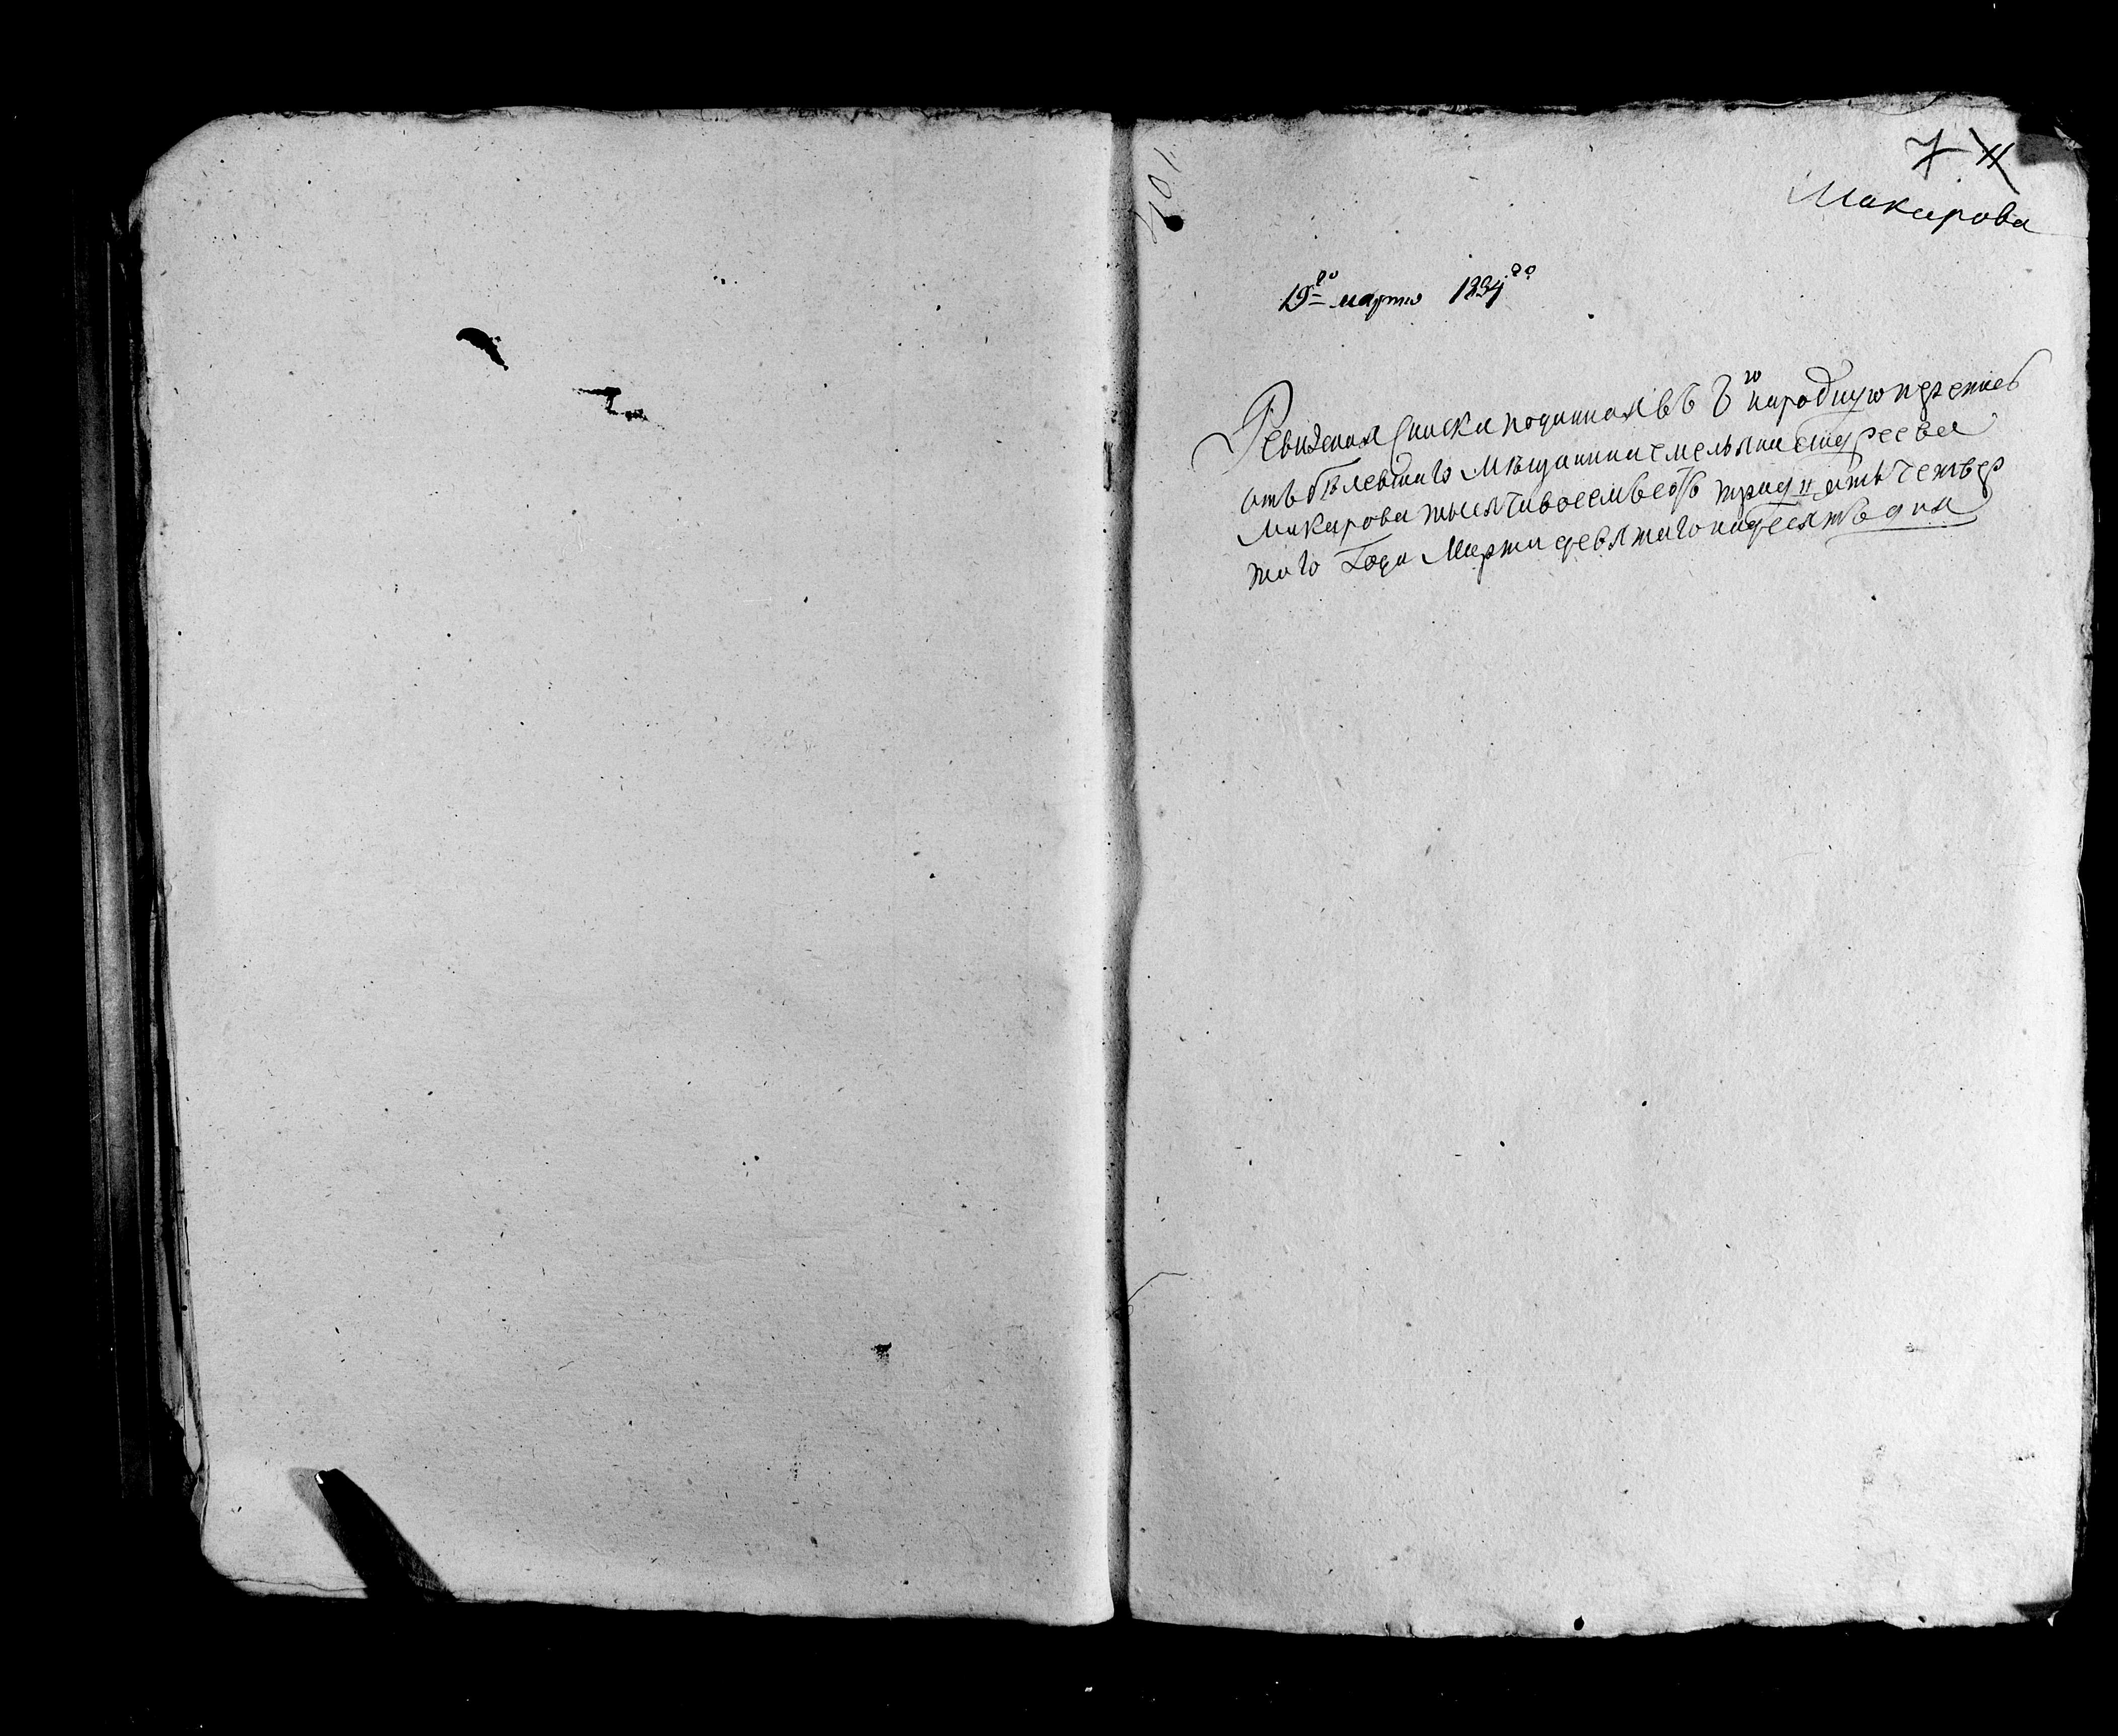 401
7 11
Макарова
19го марта 1834го
Ревиская Списка поданная въ 8ю народную перепесь
отъ бѣлевскаго мѣщанина емельяна
Макарова тысяча восемьсотъ тридцать четвер
таго Года Марта девятагонадесять дня